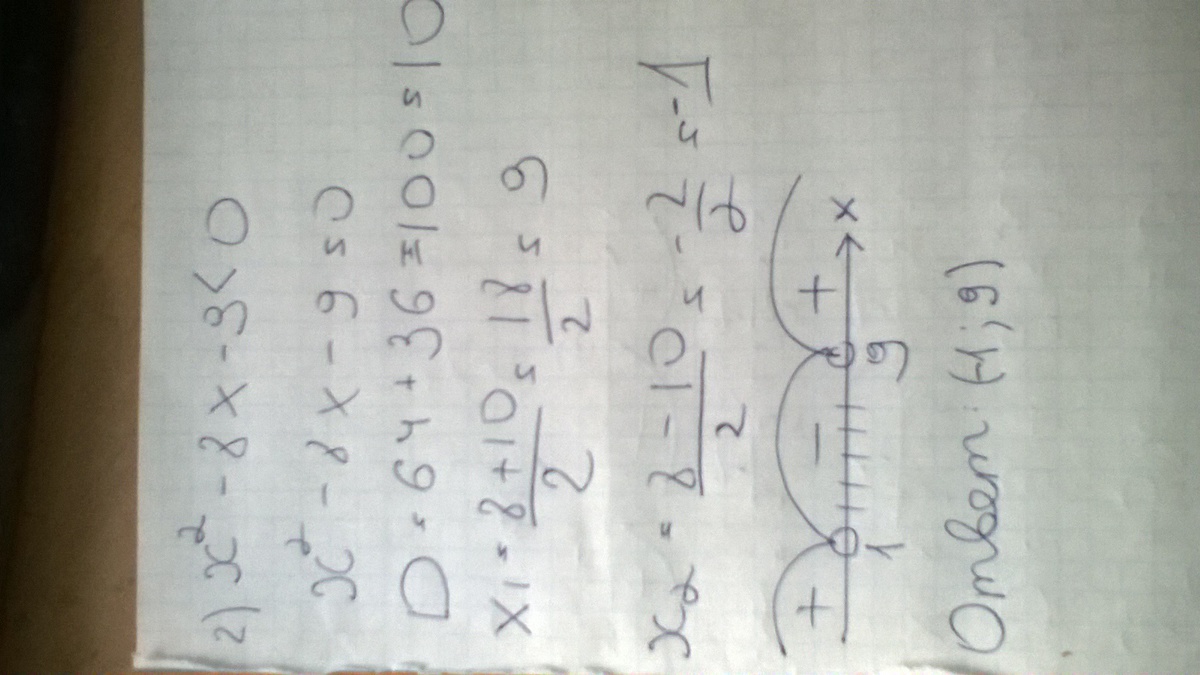 2) x² - 8x - 9 < 0
x² - 8x - 9 = 0
D = 64 + 36 = 100 = 10
x1 = 8+10/2 = 18/2 = 9
x2 = 8-10/2 = -2/2 = -1
+ - + x
1 9
Ответ: (-1; 9)